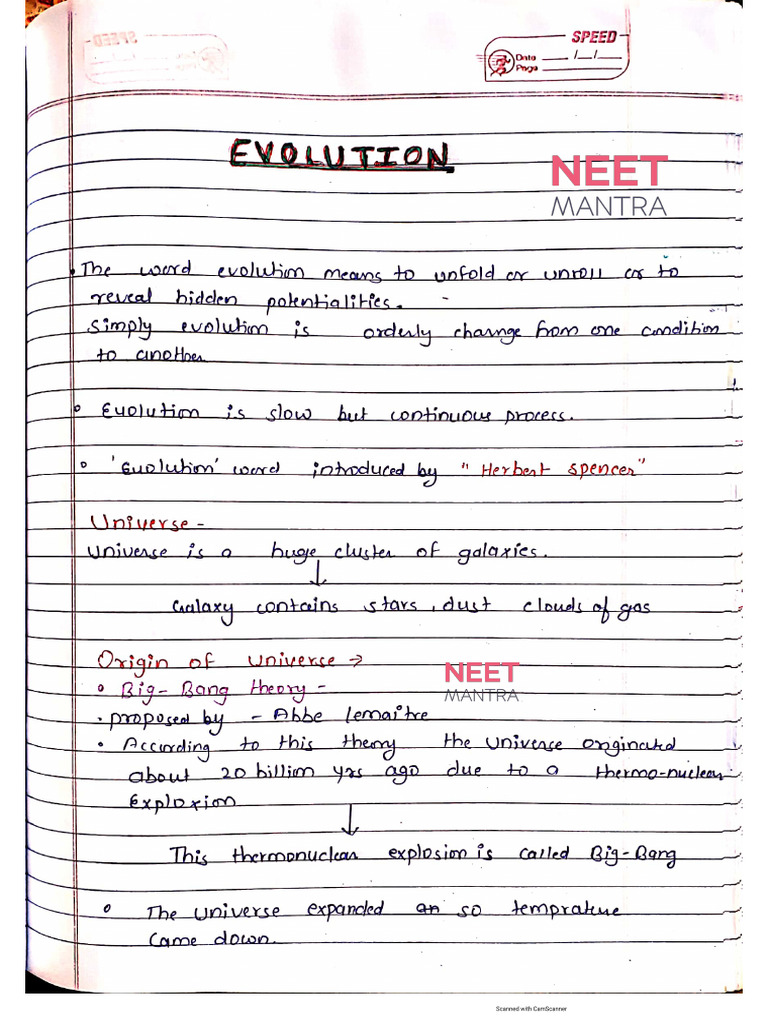 SPEED
Date __/__/__
Page
EVOLUTION
NEET
MANTRA
• The word evolution means to unfold or unroll or to
reveal hidden potentialities. -
Simply evolution is orderly change from one condition
to another
• Evolution is slow but continuous process.
• 'Evolution' word introduced by " Herbert Spencer"
Universe -
Universe is a huge cluster of galaxies.
↓
Galaxy contains stars, dust clouds of gas
Origin of universe →
NEET
MANTRA
• Big-Bang theory -
• proposed by - Abbe lemaitre
• According to this theory the universe originated
about 20 billion yrs ago due to a thermo-nuclear
Exploxion
↓
This thermonuclear explosion is called Big-Bang
• The universe expanded an so temprature
Came down.
Scanned with CamScanner